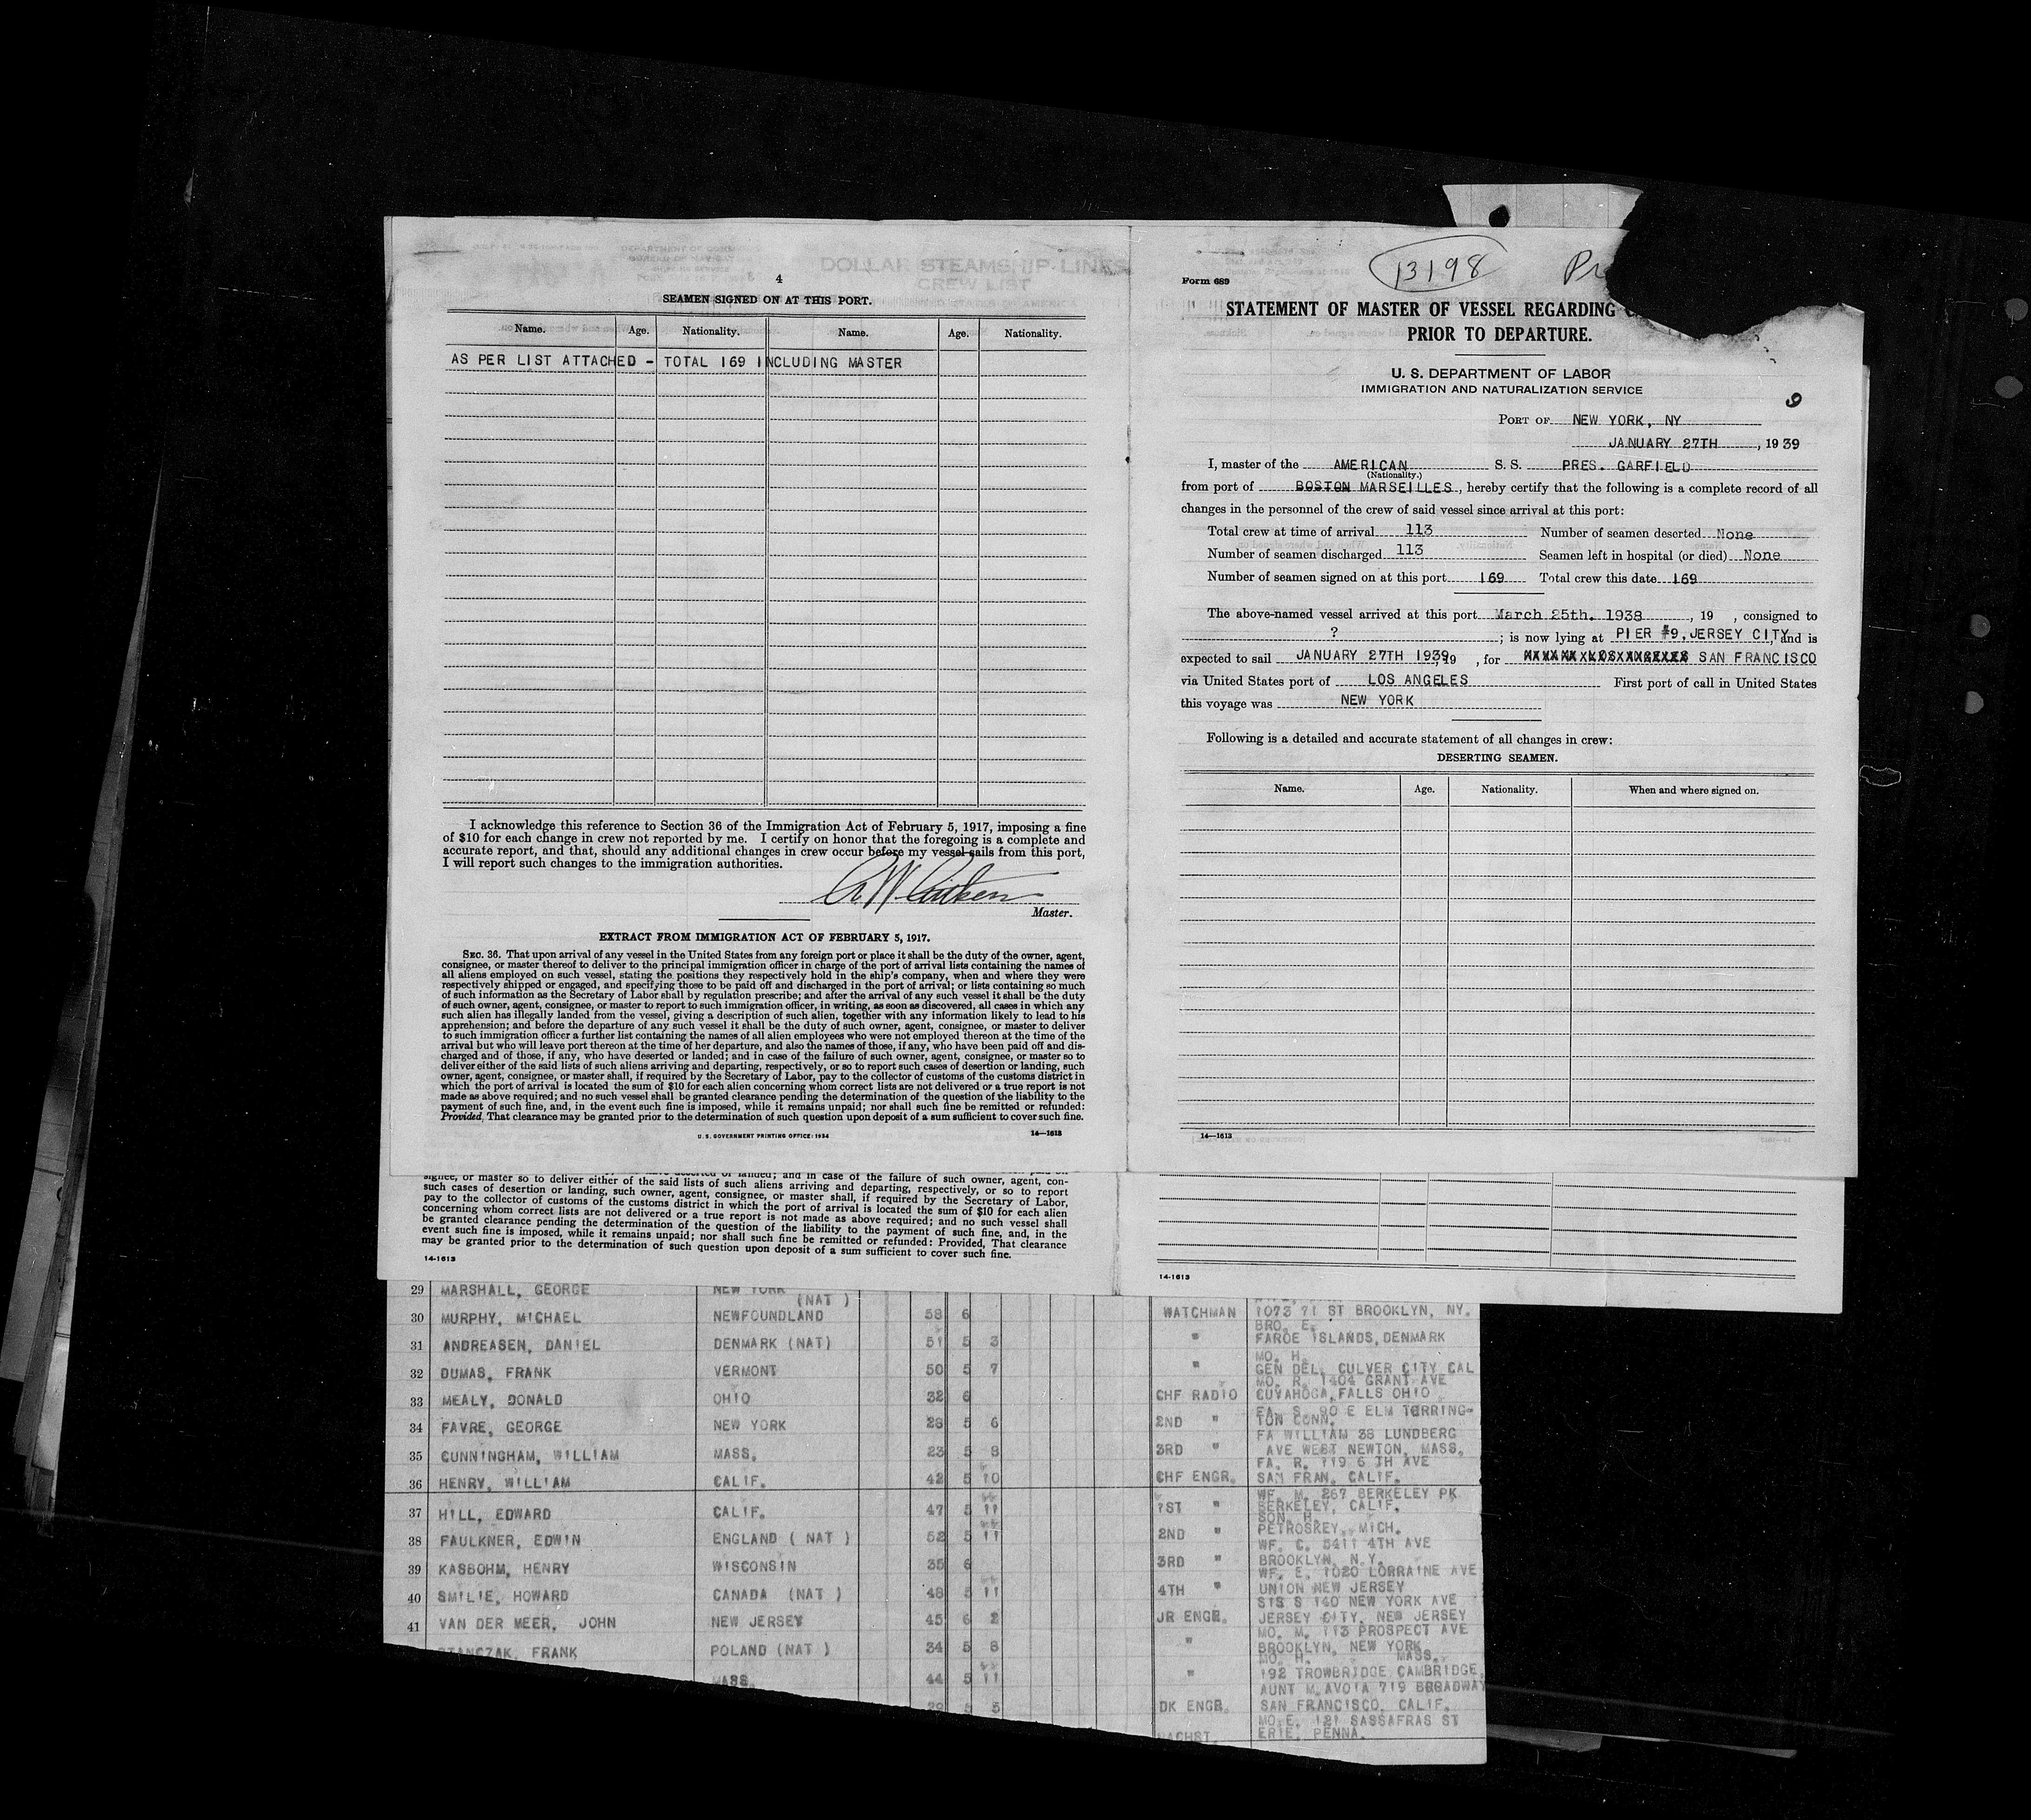 4
SEAMEN SIGNED ON AT THIS PORT.
Name. Age. Nationality. Name. Age. Nationality.
AS PER LIST ATTACHED - TOTAL 169 INCLUDING MASTER
I acknowledge this reference to Section 36 of the Immigration Act of February 5, 1917, imposing a fine
of $10 for each change in crew not reported by me. I certify on honor that the foregoing is a complete and
accurate report, and that, should any additional changes in crew occur before my vessel sails from this port,
I will report such changes to the immigration authorities.
Master.
EXTRACT FROM IMMIGRATION ACT OF FEBRUARY 5, 1917.
SEC. 36. That upon arrival of any vessel in the United States from any foreign port or place it shall be the duty of the owner, agent,
consignee, or master thereof to deliver to the principal immigration officer in charge of the port of arrival lists containing the names of
all aliens employed on such vessel, stating the positions they respectively hold in the ship's company, when and where they were
respectively shipped or engaged, and specifying those to be paid off and discharged in the port of arrival; or lists containing so much
of such information as the Secretary of Labor shall by regulation prescribe; and after the arrival of any such vessel it shall be the duty
of such owner, agent, consignee, or master to report to such immigration officer, in writing, as soon as discovered, all cases in which any
such alien has illegally landed from the vessel, giving a description of such alien, together with any information likely to lead to his
apprehension; and before the departure of any such vessel it shall be the duty of such owner, agent, consignee, or master to deliver
to such immigration officer a further list containing the names of all alien employees who were not employed thereon at the time of the
arrival but who will leave port thereon at the time of her departure, and also the names of those, if any, who have been paid off and dis-
charged and of those, if any, who have deserted or landed; and in case of the failure of such owner, agent, consignee, or master so to
deliver either of the said lists of such aliens arriving and departing, respectively, or so to report such cases of desertion or landing, such
owner, agent, consignee, or master shall, if required by the Secretary of Labor, pay to the collector of customs of the customs district in
which the port of arrival is located the sum of $10 for each alien concerning whom correct lists are not delivered or a true report is not
made as above required; and no such vessel shall be granted clearance pending the determination of the question of the liability to the
payment of such fine, and, in the event such fine is imposed, while it remains unpaid; nor shall such fine be remitted or refunded:
Provided, That clearance may be granted prior to the determination of such question upon deposit of a sum sufficient to cover such fine.
U. S. GOVERNMENT PRINTING OFFICE: 1934 14—1613
Form 689 13198 Pr
STATEMENT OF MASTER OF VESSEL REGARDING C
PRIOR TO DEPARTURE.
U. S. DEPARTMENT OF LABOR
IMMIGRATION AND NATURALIZATION SERVICE
9
PORT OF NEW YORK, NY
JANUARY 27TH , 1939
I, master of the AMERICAN S. S. PRES. GARFIELD
(Nationality.)
from port of BOSTON MARSEILLES , hereby certify that the following is a complete record of all
changes in the personnel of the crew of said vessel since arrival at this port:
Total crew at time of arrival 113 Number of seamen deserted None
Number of seamen discharged 113 Seamen left in hospital (or died) None
Number of seamen signed on at this port 169 Total crew this date 169
The above-named vessel arrived at this port March 25th. 1938 , 19 , consigned to
? ; is now lying at PIER #9, JERSEY CITY, and is
expected to sail JANUARY 27TH 1939, 19 , for SAN FRANCISCO
via United States port of LOS ANGELES First port of call in United States
this voyage was NEW YORK
Following is a detailed and accurate statement of all changes in crew:
DESERTING SEAMEN.
Name. Age. Nationality. When and where signed on.
14—1613
signee, or master so to deliver either of the said lists of such aliens arriving and departing, respectively, or so to report
such cases of desertion or landing, such owner, agent, consignee, or master shall, if required by the Secretary of Labor,
pay to the collector of customs of the customs district in which the port of arrival is located the sum of $10 for each alien
concerning whom correct lists are not delivered or a true report is not made as above required; and no such vessel shall
be granted clearance pending the determination of the question of the liability to the payment of such fine, and, in the
event such fine is imposed, while it remains unpaid; nor shall such fine be remitted or refunded: Provided, That clearance
may be granted prior to the determination of such question upon deposit of a sum sufficient to cover such fine.
14-1613
14-1613
29 MARSHALL, GEORGE NEW YORK
(NAT )
30 MURPHY, MICHAEL NEWFOUNDLAND 58 6 WATCHMAN 1073 71 ST BROOKLYN, NY.
BRO. E.
31 ANDREASEN, DANIEL DENMARK (NAT) 51 5 3 " FAROE ISLANDS, DENMARK
MO. H.
32 DUMAS, FRANK VERMONT 50 5 7 " GEN DEL, CULVER CITY CAL
MO. R. 1404 GRANT AVE
33 MEALY, DONALD OHIO 32 6 CHF RADIO CUYAHOGA, FALLS OHIO
FA. S. 90 E ELM TORRING-
34 FAVRE, GEORGE NEW YORK 28 5 6 2ND " TON CONN.
FA WILLIAM 38 LUNDBERG
35 CUNNINGHAM, WILLIAM MASS. 23 5 8 3RD " AVE WEST NEWTON, MASS.
FA. R. 119 6 TH AVE
36 HENRY, WILLIAM CALIF. 42 5 10 CHF ENGR. SAN FRAN, CALIF.
WF. M. 267 BERKELEY PK
37 HILL, EDWARD CALIF. 47 5 11 1ST " BERKELEY, CALIF.
SON. H.
38 FAULKNER, EDWIN ENGLAND ( NAT ) 52 5 11 2ND " PETROSKEY, MICH.
WF. C. 5411 4TH AVE
39 KASBOHM, HENRY WISCONSIN 35 6 3RD " BROOKLYN, N.Y.
WF. E. 1020 LORRAINE AVE
40 SMILIE, HOWARD CANADA (NAT ) 48 5 11 4TH " UNION NEW JERSEY
SIS S 140 NEW YORK AVE
41 VAN DER MEER, JOHN NEW JERSEY 45 6 2 JR ENGR. JERSEY CITY, NEW JERSEY
MO. M. 113 PROSPECT AVE
FRANK POLAND (NAT ) 34 5 8 " BROOKLYN, NEW YORK
MO. H. MASS.
MASS. 44 5 11 " 192 TROWBRIDGE CAMBRIDGE,
AUNT M. AVOIA 719 BROADWAY
5 3 DK ENGR. SAN FRANCISCO, CALIF.
MO. E. 121 SASSAFRAS ST
ERIE, PENNA.